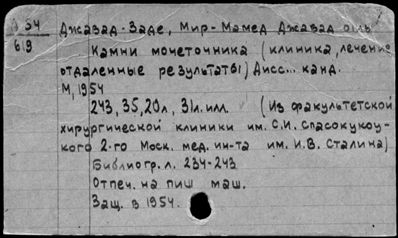 Д 54 Джавад-Заде, Мир-Мамед Джавад оглы
619 Камни мочеточника (клиника, лечение
отдаленные результаты) Дисс... канд.
М, 1954
243, 35, 20 л, 31 л. илл. (Из факультетской
хирургической клиники им. С.И. Спасокукоц-
кого 2-го Моск. мед. ин-та им. И.В. Сталина)
Библиогр. л. 234-243
Отпеч. на пиш маш.
Защ. в 1954.